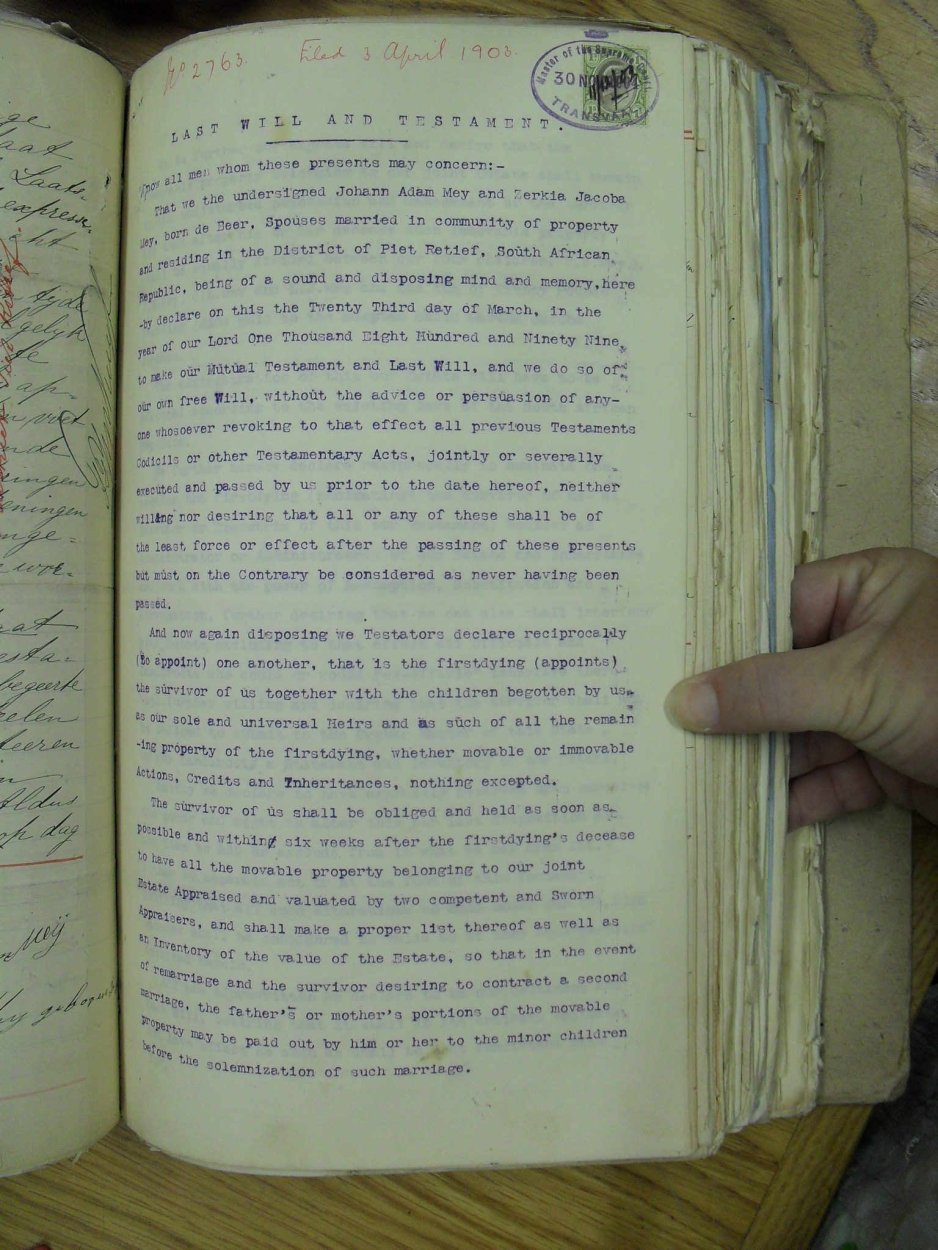 No 2763. Filed 3 April 1903.
Master of the Supreme Court
30 NOV
TRANSVAAL
LAST WILL AND TESTAMENT.
Know all men whom these presents may concern:-
That we the undersigned Johann Adam Mey and Zerkia Jacoba
Mey, born de Beer, Spouses married in community of property
and residing in the District of Piet Retief, South African
Republic, being of a sound and disposing mind and memory,here
-by declare on this the Twenty Third day of March, in the
year of our Lord One Thousand Eight Hundred and Ninety Nine
to make our Mutual Testament and Last Will, and we do so of
our own free Will, without the advice or persuasion of any-
one whosoever revoking to that effect all previous Testaments
Codicils or other Testamentary Acts, jointly or severally
executed and passed by us prior to the date hereof, neither
willing nor desiring that all or any of these shall be of
the least force or effect after the passing of these presents
but must on the Contrary be considered as never having been
passed.
And now again disposing we Testators declare reciprocally
(to appoint) one another, that is the firstdying (appoints)
the survivor of us together with the children begotten by us
as our sole and universal Heirs and as such of all the remain
-ing property of the firstdying, whether movable or immovable
Actions, Credits and Inheritances, nothing excepted.
The survivor of us shall be obliged and held as soon as
possible and within six weeks after the firstdying's decease
to have all the movable property belonging to our joint
Estate Appraised and valuated by two competent and Sworn
Appraisers, and shall make a proper list thereof as well as
an Inventory of the value of the Estate, so that in the event
of remarriage and the survivor desiring to contract a second
marriage, the father's or mother's portions of the movable
property may be paid out by him or her to the minor children
before the solemnization of such marriage.